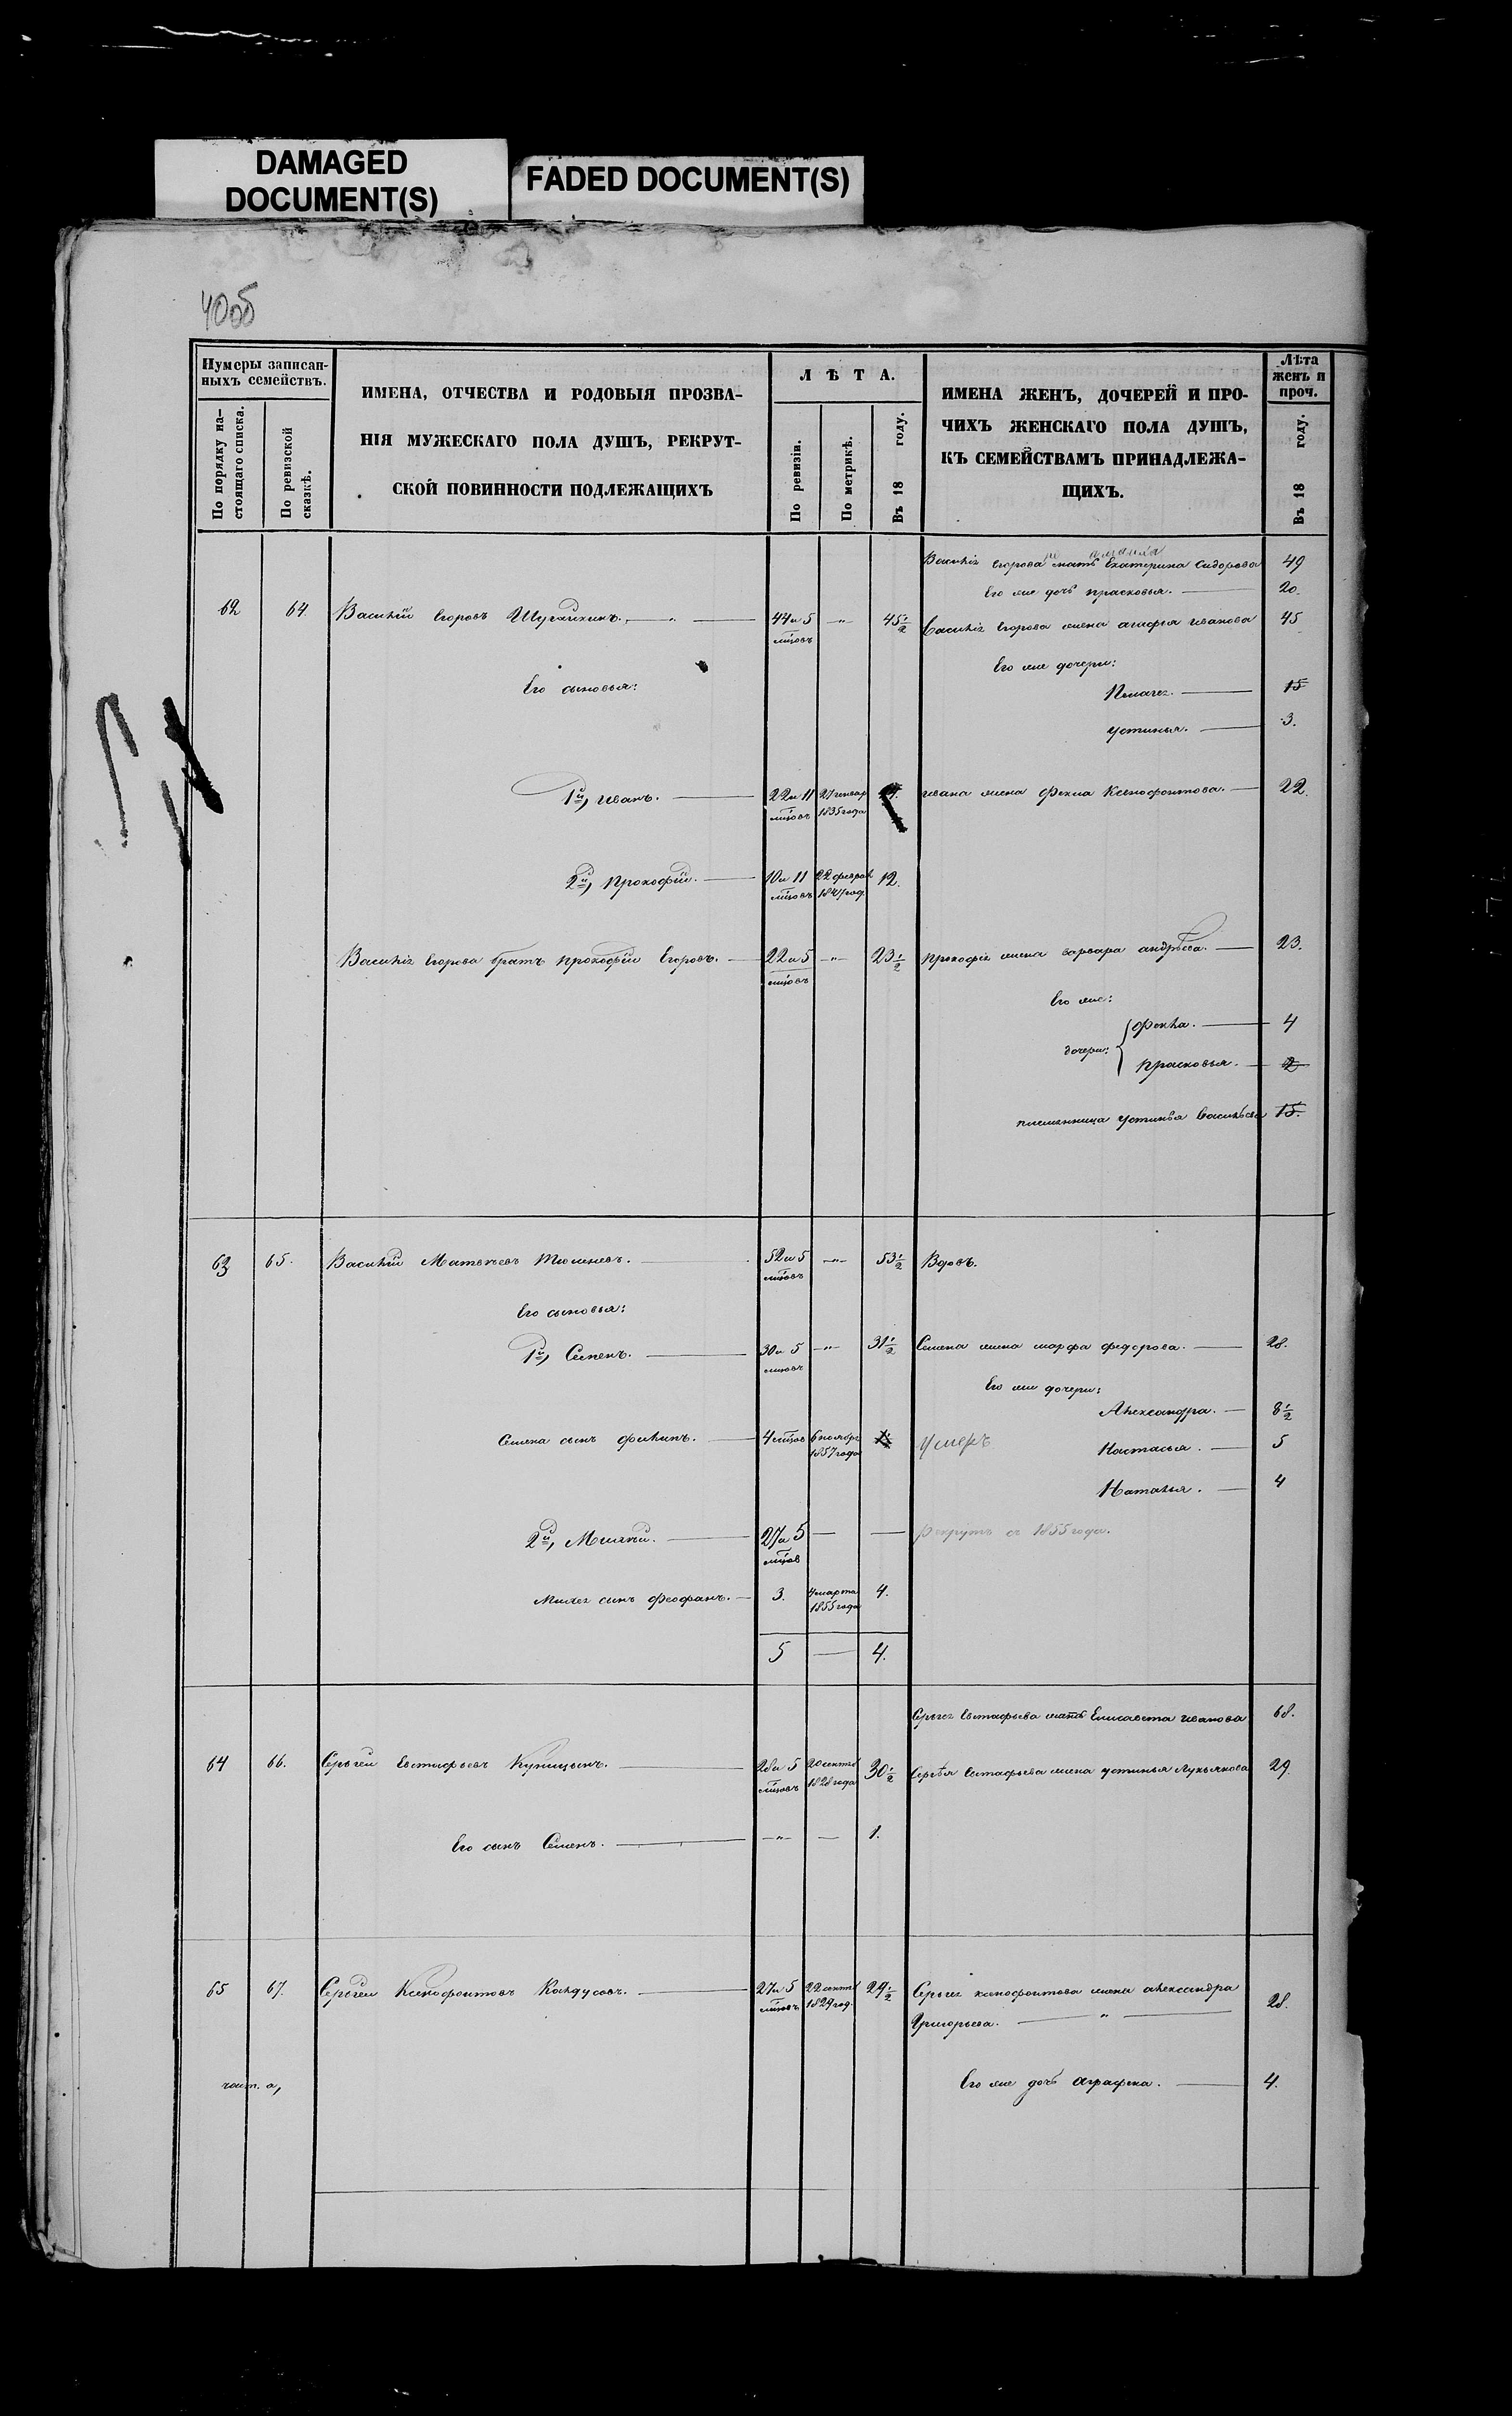 DAMAGED
DOCUMENT(S)
FADED DOCUMENT(S)
40об
Нумеры записан-
ныхъ семействъ.
По порядку на-
стоящаго списка.
По ревизской
сказкѣ.
ИМЕНА, ОТЧЕСТВА И РОДОВЫЯ ПРОЗВА-
НІЯ МУЖЕСКАГО ПОЛА ДУШЪ, РЕКРУТ-
СКОЙ ПОВИННОСТИ ПОДЛЕЖАЩИХЪ
ЛѢТА.
По ревизіи.
По метрикѣ.
Въ 18 году.
ИМЕНА ЖЕНЪ, ДОЧЕРЕЙ И ПРО-
ЧИХЪ ЖЕНСКАГО ПОЛА ДУШЪ,
КЪ СЕМЕЙСТВАМЪ ПРИНАДЛЕЖА-
ЩИХЪ.
Лѣта
женъ и
проч.
Въ 18 году.
Василія Егорова мать Екатерина Сидорова 49
Его же дочь Прасковья. 20.
62 64 Василій Егоровъ 44 и 5 мѣцовъ —"— 45 1/2 Василія Егорова жена Агафья Иванова 45
Его же дочери:
Его сыновья:
Пелагея. 15
Устинья. 3.
1й, Иванъ. 22 и 11 мѣцовъ 27 генвар 1835 года Ивана жена Фекла Ксенофонтова. 22.
2й, Прокофій. 10 и 11 мѣцовъ 22 феврал 1847 год. 12.
Василія Егорова братъ Прокофій Егоровъ. 22 и 5 мѣцовъ —"— 23 1/2 Прокофія жена Варвара Андрѣева. 23.
Его же:
дочери: Фекла. 4
Прасковья. 2
племянница Устинья Васильева 15.
63 65. Василій Матвѣевъ Тюменевъ. 52 и 5 мѣцовъ —"— 53 1/2 Вдовъ.
Его сыновья:
1й, Семенъ. 30 и 5 мѣцовъ —"— 31 1/2 Семена жена Марфа Федорова. 28.
Его же дочери:
Александра. 8 1/2
Семена сынъ Филипъ. 4 мѣцов 6 ноября 1857 года умеръ
Настасья. 5
Наталья. 4
2й, Михей. 27 и 5 мѣцов — — Рекрутъ съ 1855 года.
Михея сынъ Феофанъ. 3. 4 марта 1855 года 4.
5 — 4.
Сергея Евстафьева мать Елисавета Иванова 68.
64 66. Сергей Евстафьевъ Купицынъ. 28 и 5 мѣцовъ 20 сентяб 1828 года 30 1/2 Сергѣя Евстафьева жена Устинья Лукьянова 29.
Его сынъ Семенъ. —"— — 1.
65 67. Сергей Ксенофонтовъ Калдусовъ. 27 и 5 мѣцовъ 22 сентяб 1829 год. 29 1/2 Сергея Ксенофонтова жена Александра
Григорьева. — " — 28.
Его же дочь Аграфена. 4.